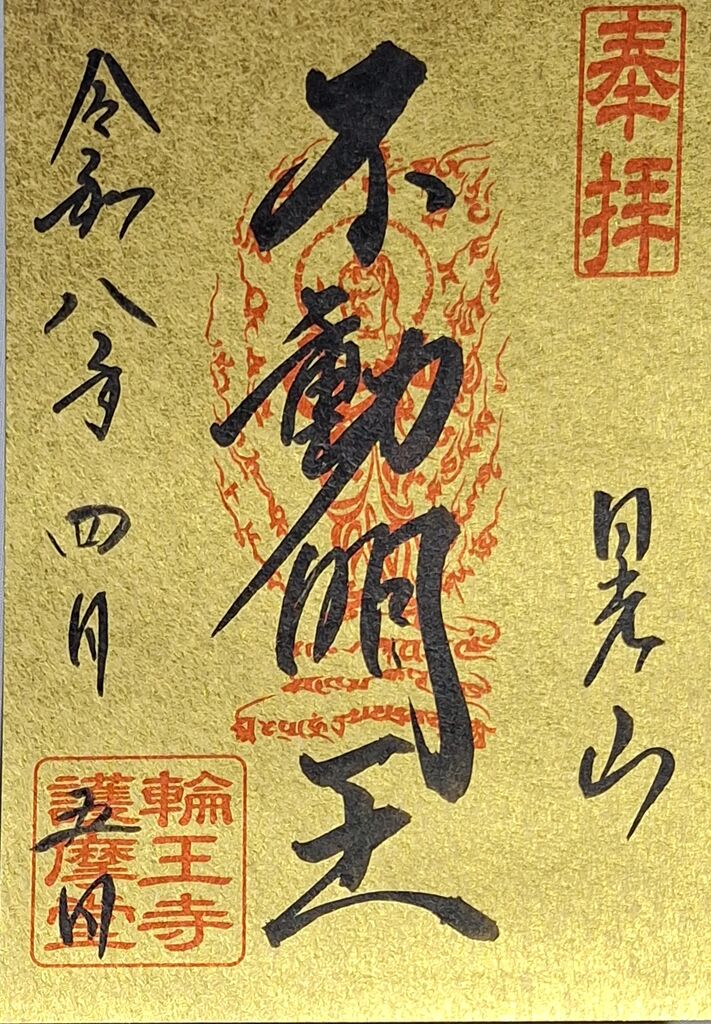 奉拝
日光山
不動明王
輪王寺
護摩堂
令和八年四月五日